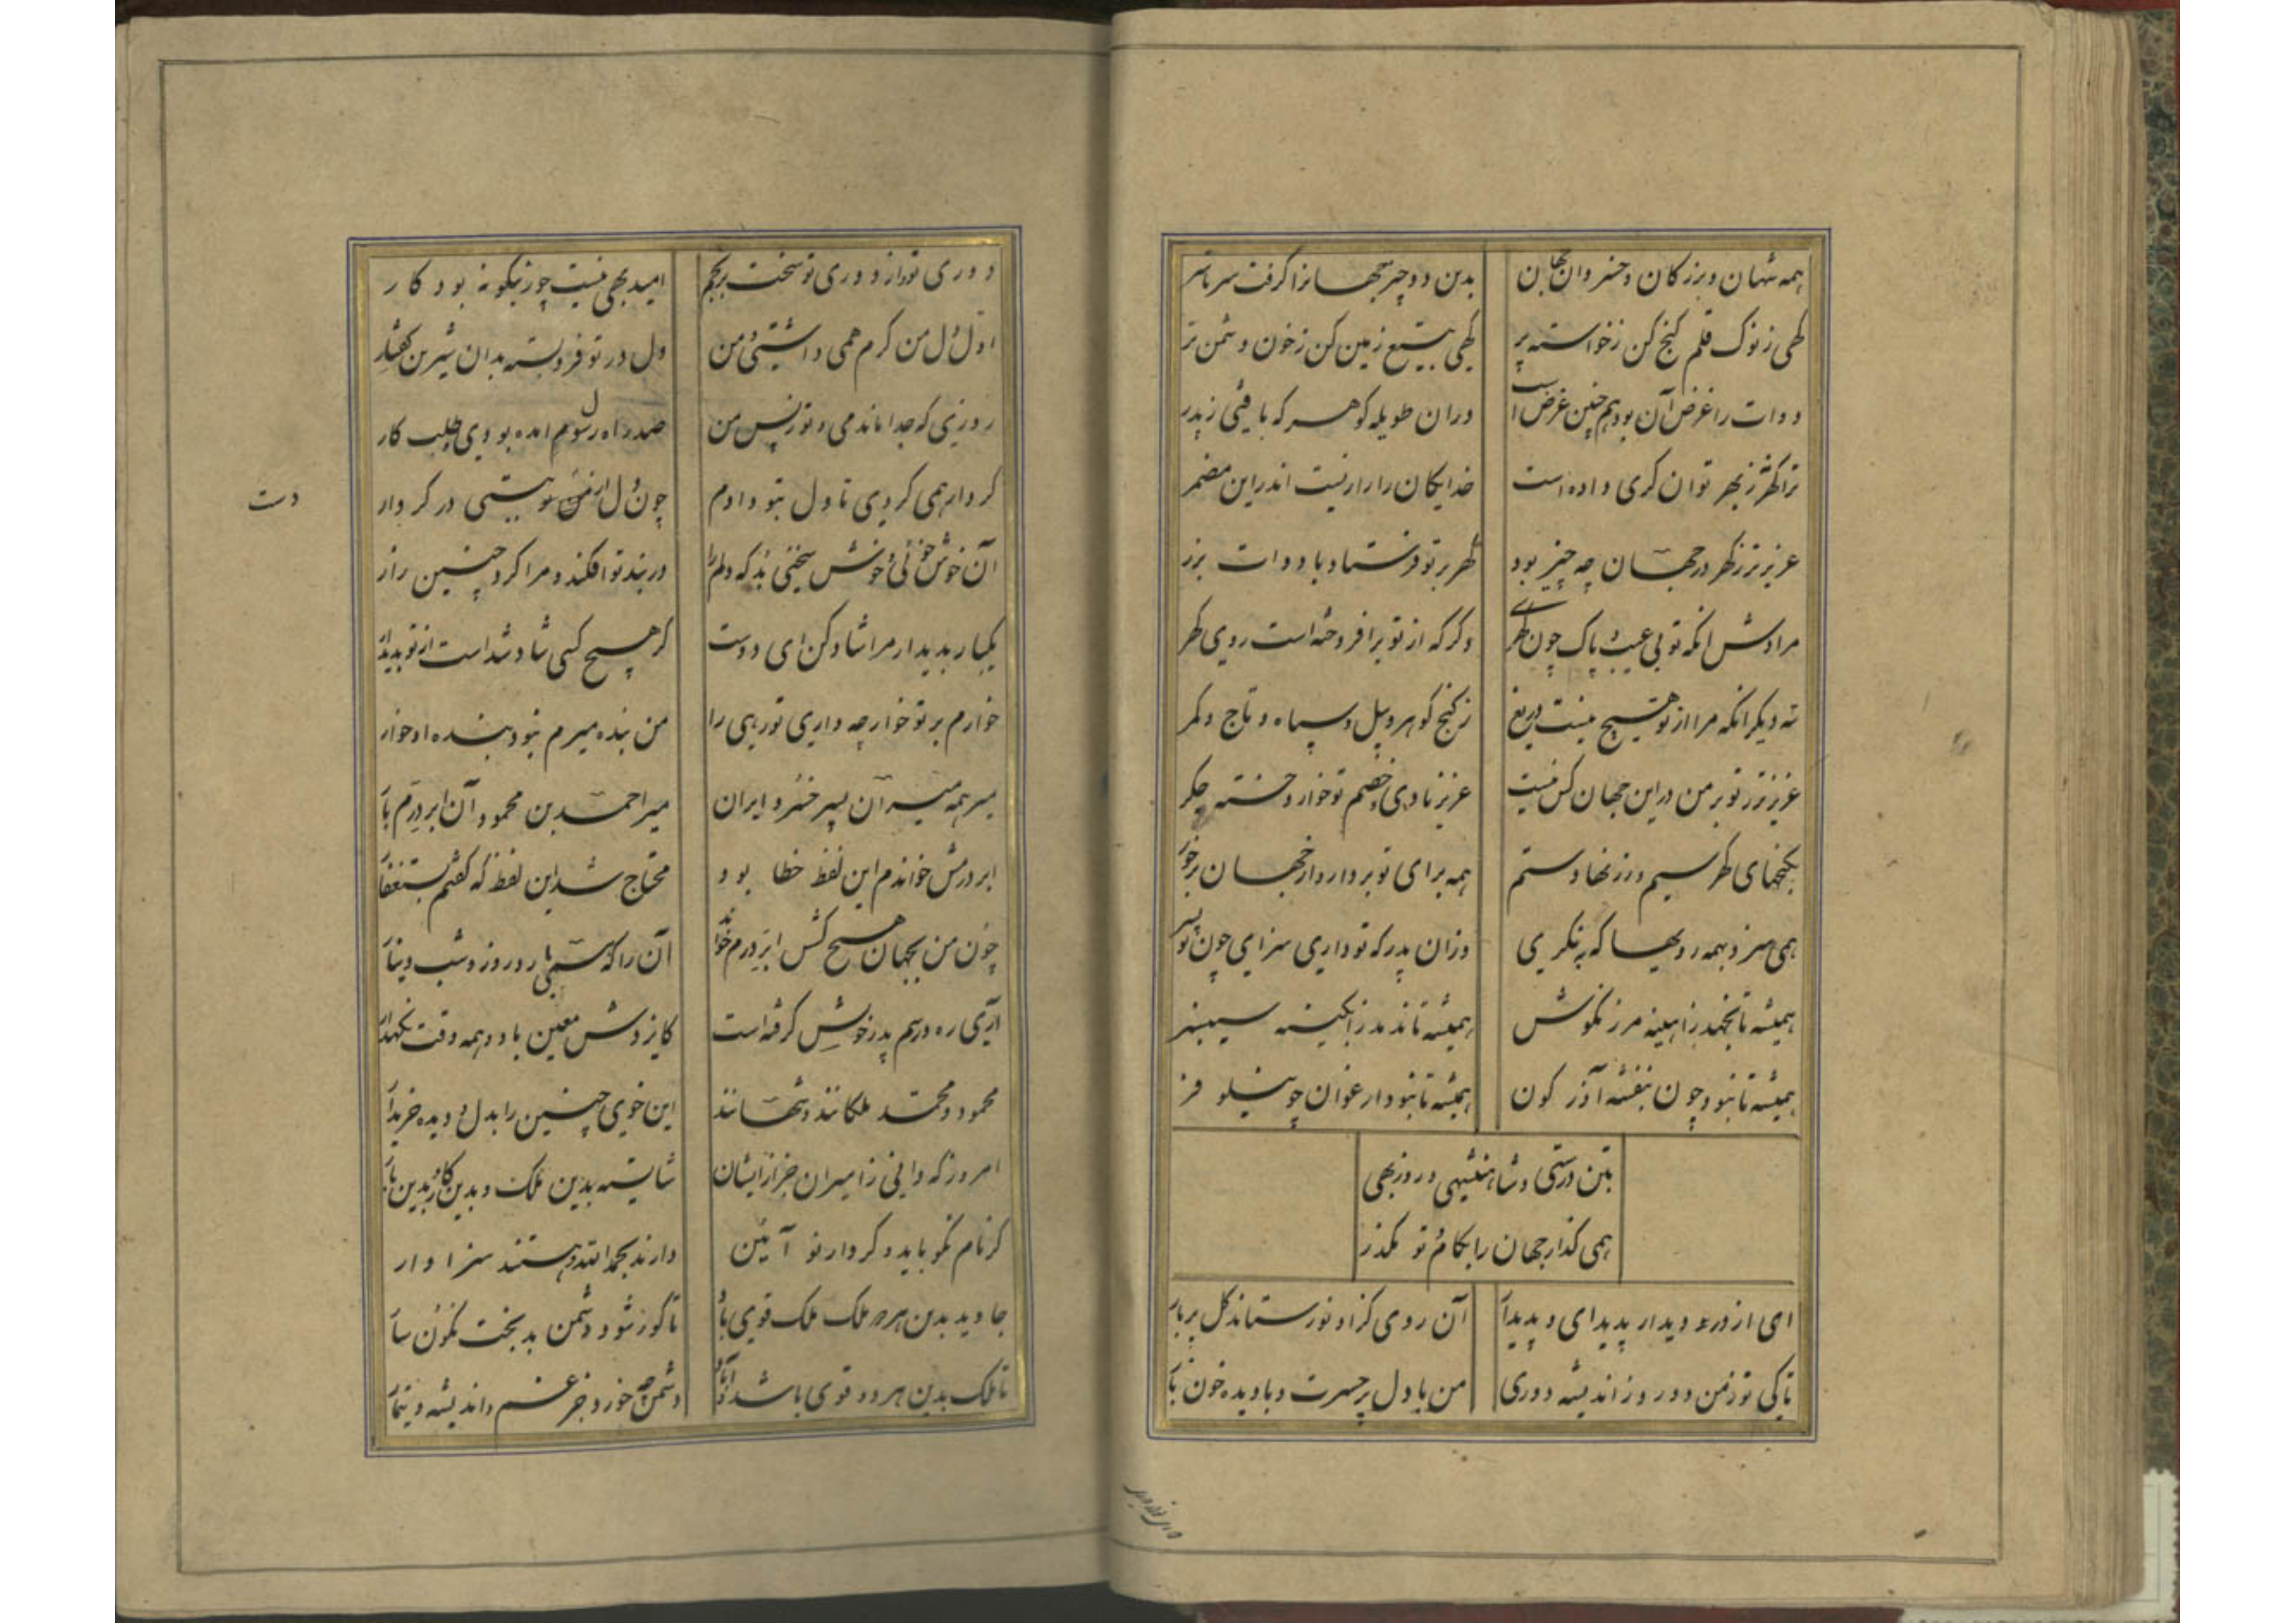 همه شهان و بزرگان و خسروان جهان بدین دو چیز جهانرا گرفت سرتاسر
گهی ز نوک قلم گنج کن ز خواسته پر گهی بتیغ زمین کن ز خون دشمن تر
دوات را غرض آن بود هم چنین غرض است در ان طویله گوهر که یافتی ز پدر
ترا گهر ز بهر توانگری داده است خدایگان را رازیست اندر این مضمر
عزیزتر ز گهر در جهان چه چیز بود گهر بر تو فرستاد با دوات بزر
مرادش انکه تو بی عیب و پاک چون گهری وگر که از تو برافروخته است روی گهر
نه دیگر انکه مرا از تو هیچ نیست دریغ ز گنج گوهر و پیل و سپاه و تاج و کمر
عزیزتر ز تو بر من در این جهان کس نیست عزیز بادی و خصم تو خوار و خسته جگر
بگنجهای گهر سیم و زر نهادستم همه برای تو بردار و از جهان برخور
همی سزد بهمه رویها که بنگری وزان پدر که تو داری سزای چون تو پسر
همیشه تا نجهد ز اهینه مرزنکوش همیشه تا ندمد ز ابکینه سیسنبر
همیشه تا نبود چون بنفشه آذرگون همیشه تا نبود ارغوان چو نیلوفر
بتن درستی و شاهنشهی و روزبهی
همی گذار جهان را بکام و تو مگذر
ای از در دیدار پدید ای و پدیدآر آن روی کزاو نورستاند گل پربار
تا کی تو ز من دور و ز اندیشه دوری من با دل پرحسرت و با دیده خونبار
دوری تو و از دوری تو سخت برنجم امید بهی نیست چو زینگونه بود کار
اول دل من گرم همی داشتی و من دل در تو فروبسته بدان شیرین گفتار
روزی که جدا ماندمی و تو ز پس من صد راه رسول امده بودی طلب کار
کردار همی کردی تا دل بتو دادم چون دل از من بستدی در کردار
دست
آن خوش خوئی و خوش سخنی بد که دلم را در بند تو افکند و مرا کرد چنین زار
یکبار بدیدار مرا شاد کن ای دوست گر هیچ کسی شاد شداست از تو بدیدار
خوارم بر تو خوار چه داری تو رهی را من بنده میرم نبود بنده او خوار
میر همه میران پسر خسرو ایران میر احمد بن محمود آن ابر درم بار
ابر درمش خواندم این لفظ خطا بود محتاج شد این لفظ که گفتم بستغفار
چون من بجهان هیچ کس ابر درم خواند آن را که ببارد روز و شب دینار
آری ره و رسم پدر خویش گرفته است کایزدش معین باد و همه وقت نگهدار
محمود و محمد ملکانند و شهانند این خوی چنین را بدل و دیده خریدار
امروز که دانی ز امیران جز از ایشان شایسته بدین ملک و بدین کار و بدین بار
گر نام نکو باید و کردار نو آئین دارند بحمدالله و هستند سزاوار
جاوید بدین هر دو ملک ملک قوی باد تا کور شود دشمن بدبخت نگونسار
تا ملک بدین هر دو قوی باشد دشمن چه خورد جز غم و اندیشه و تیمار